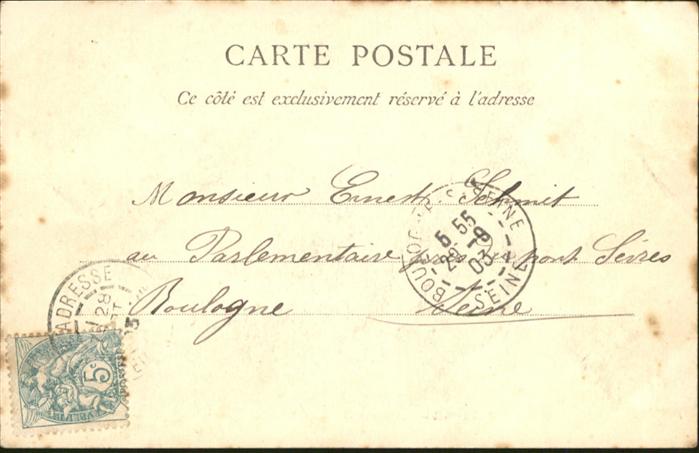 CARTE POSTALE
Ce côté est exclusivement réservé à l'adresse
Monsieur Ernest Schmit
au Parlementaire près du pont Sèvres
Boulogne Seine
BOULOGNE S SEINE
5 55
28 9
03
SEINE
ADRESSE
28
5c